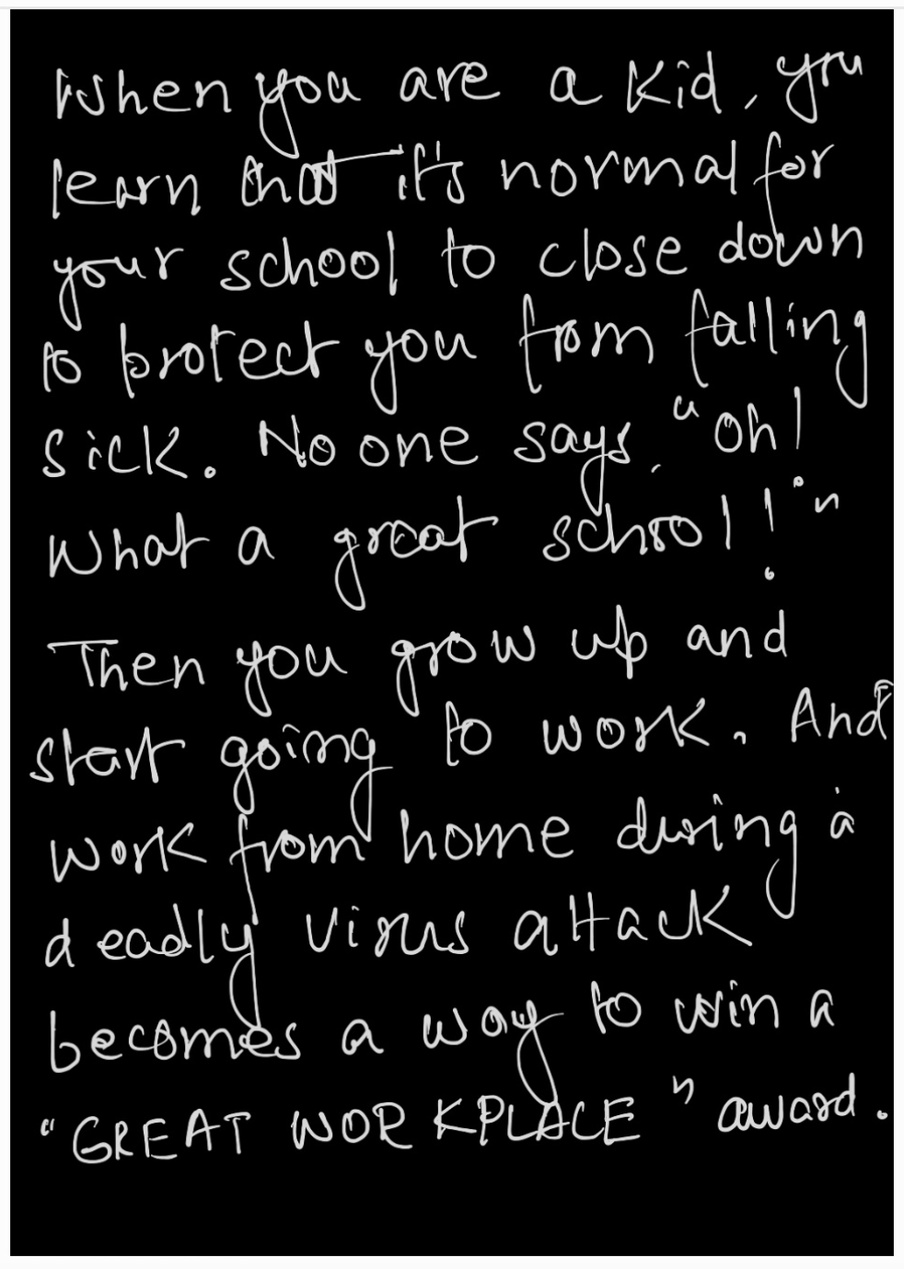 When you are a kid, you
learn that it's normal for
your school to close down
to protect you from falling
sick. No one says, "Oh!
What a great school!"
Then you grow up and
start going to work. And
work from home during a
deadly virus attack
becomes a way to win a
"GREAT WORKPLACE" award.